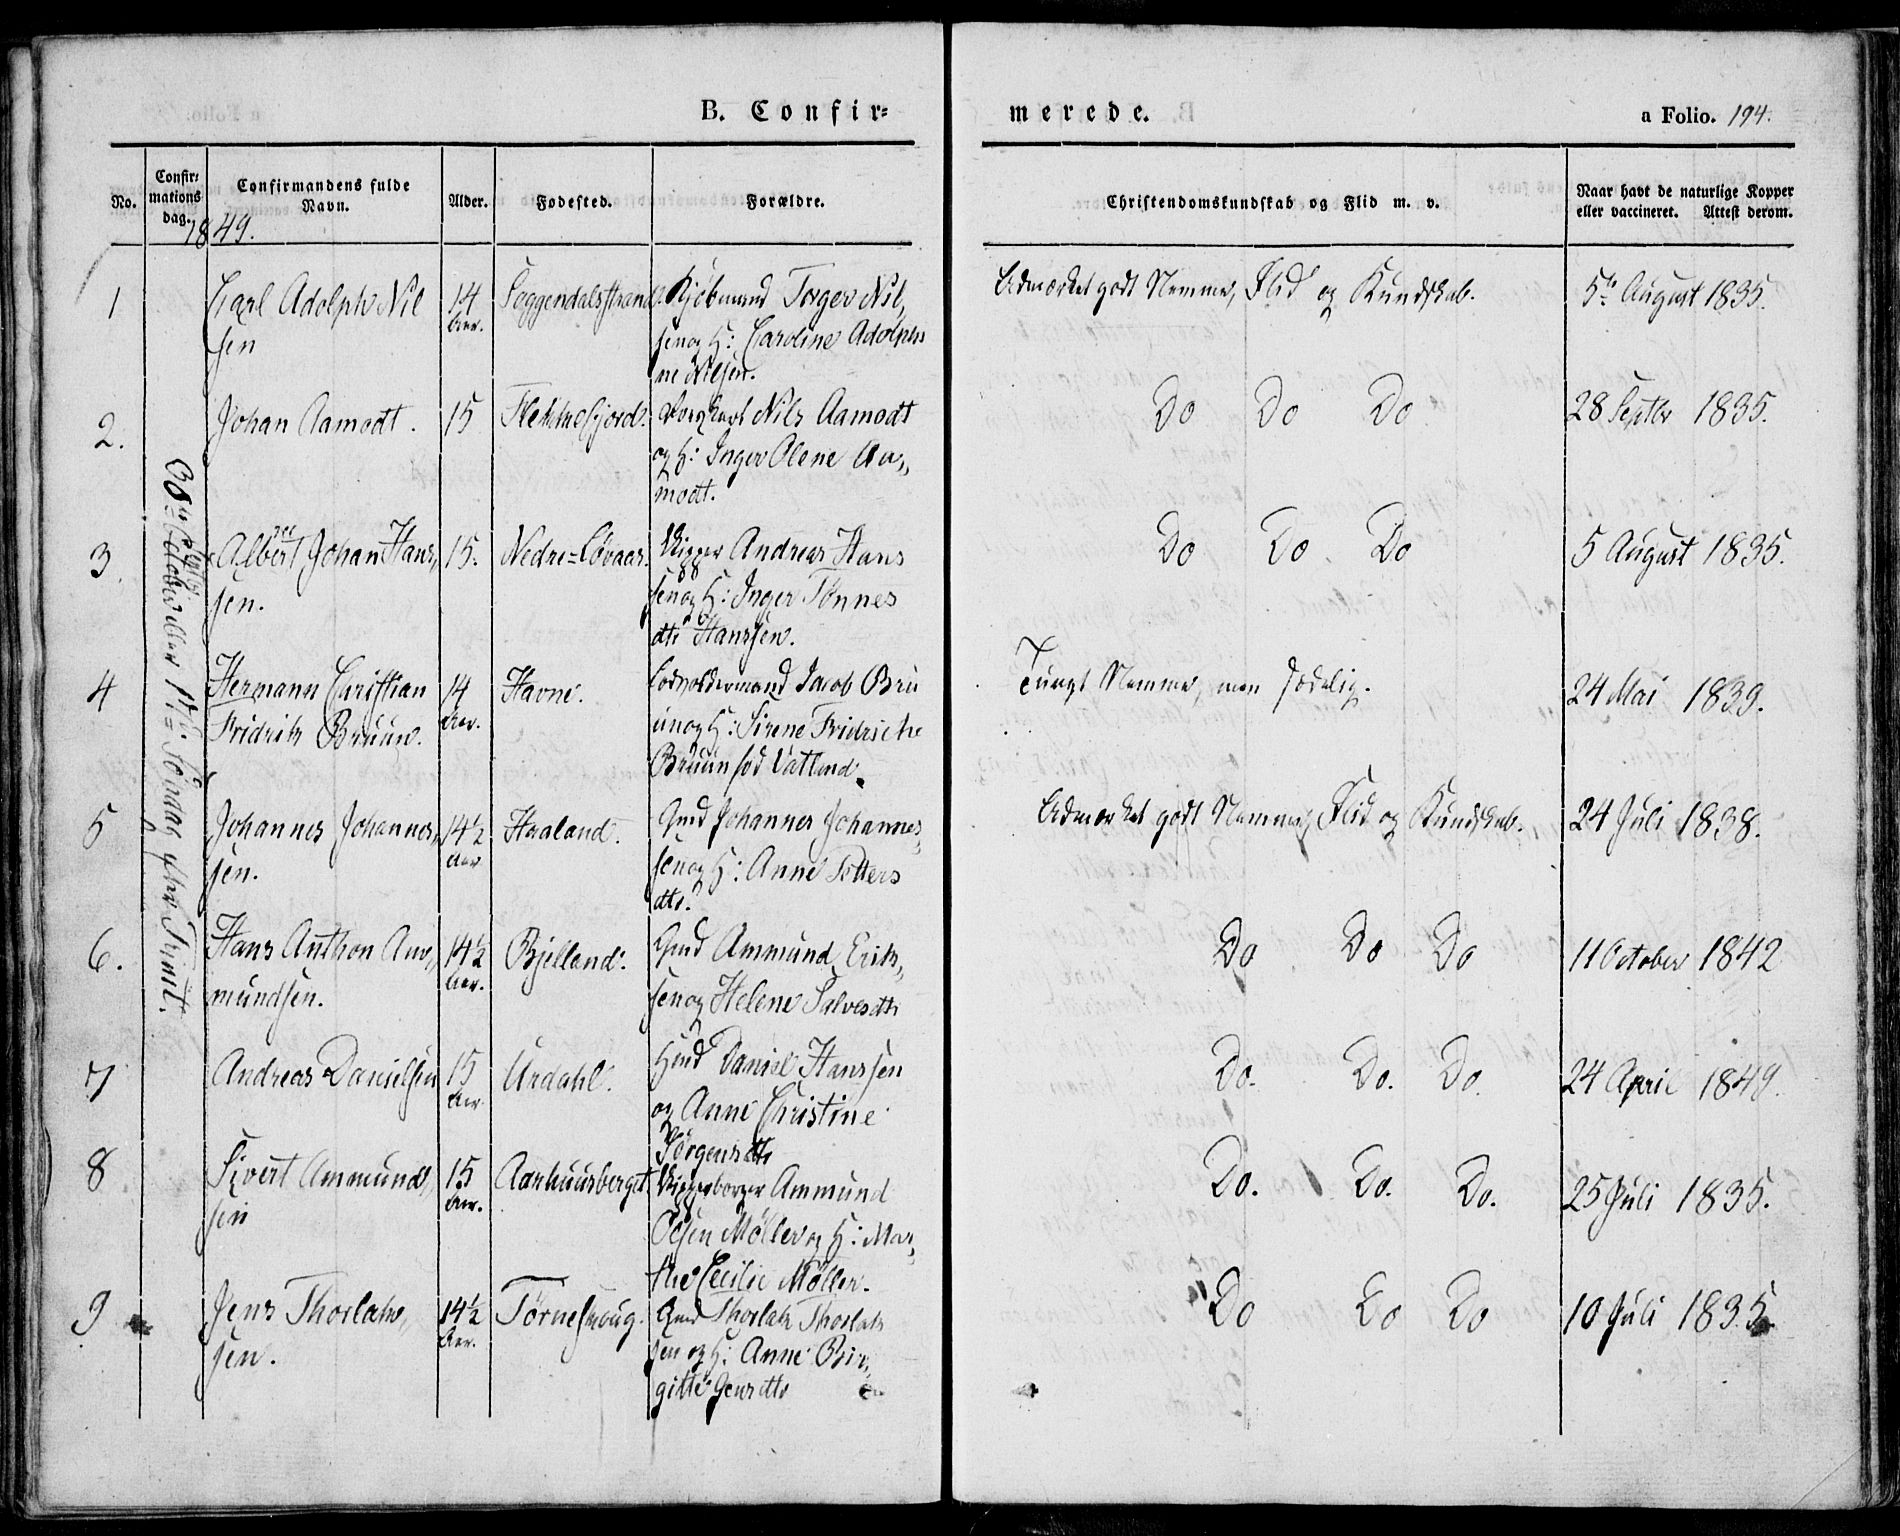 B. Confir=
merede.
a Folio. 194.
No.
Confir=
mations
dag.
Confirmandens fulde
Navn.
Alder.
Fødested.
Forældre.
Christendomskundskab og Flid m. v.
Naar havt de naturlige Kopper
eller vaccineret. Attest derom.
1849.
30te Septbr October eller 17de Søndag efter Trinit.
1
Carl Adolph Nil
sen
14
Aar.
Soggendalsstrand.
Kjøbmand Torger Nil,
sen og H: Caroline Adolphi
ne Nilsen.
Udmærket godt Nemme, Flid og Kundskab.
5te August 1835.
2.
Johan Aamodt.
15
Flekkefjord.
Nils Aamodt
og H: Inger Olene Aa„
modt.
Do Do Do
28 Septbr 1835.
3.
Albert Johan Hans„
sen.
15.
Nedre=Løvaas.
Skipper Andreas Hans
sen og H: Inger Tønnes
dtr Hanssen.
Do Do Do
5 August 1835.
4
Hermann Christian
Fridrik Bruun.
14
Aar.
Havne.
Jacob Bru
un og H: Sirene Fridriche
Bruun fød Vatland.
Tungt Nemme, men sædelig.
24 Mai 1839.
5
Johannes Johannes„
sen.
14½
Aar
Haaland.
Gmd Johannes Johannes„
sen og H: Anne Petters
dtr.
Udmærket godt Nemme, Flid og Kundskab.
24 Juli 1838.
6.
Hans Anthon Am„
mundsen.
14½
Aar.
Bjelland.
Gmd Ammund Erik„
sen og Helene Salvesdtr
Do Do Do
11 October 1842
7
Andreas Danielsen
15
Aar
Urdahl.
Hmd Daniel Hanssen
og Anne Christine
Jørgensdtr
Do. Do. Do.
24 April 1849.
8
Sivert Ammund„
sen
15
Aar.
Aarhuusberget
Skipperborger Ammund
Olsen Møller og H: Mar„
the Cecilie Møller.
Do. Do. Do.
25 Juli 1835.
9
Jens Thorlak„
sen.
14½
Aar.
Tørneshoug.
Gmd Thorlak Thorlak
sen og H: Anne Bir„
gitte Jensdtr
Do Do Do
10 Juli 1835.